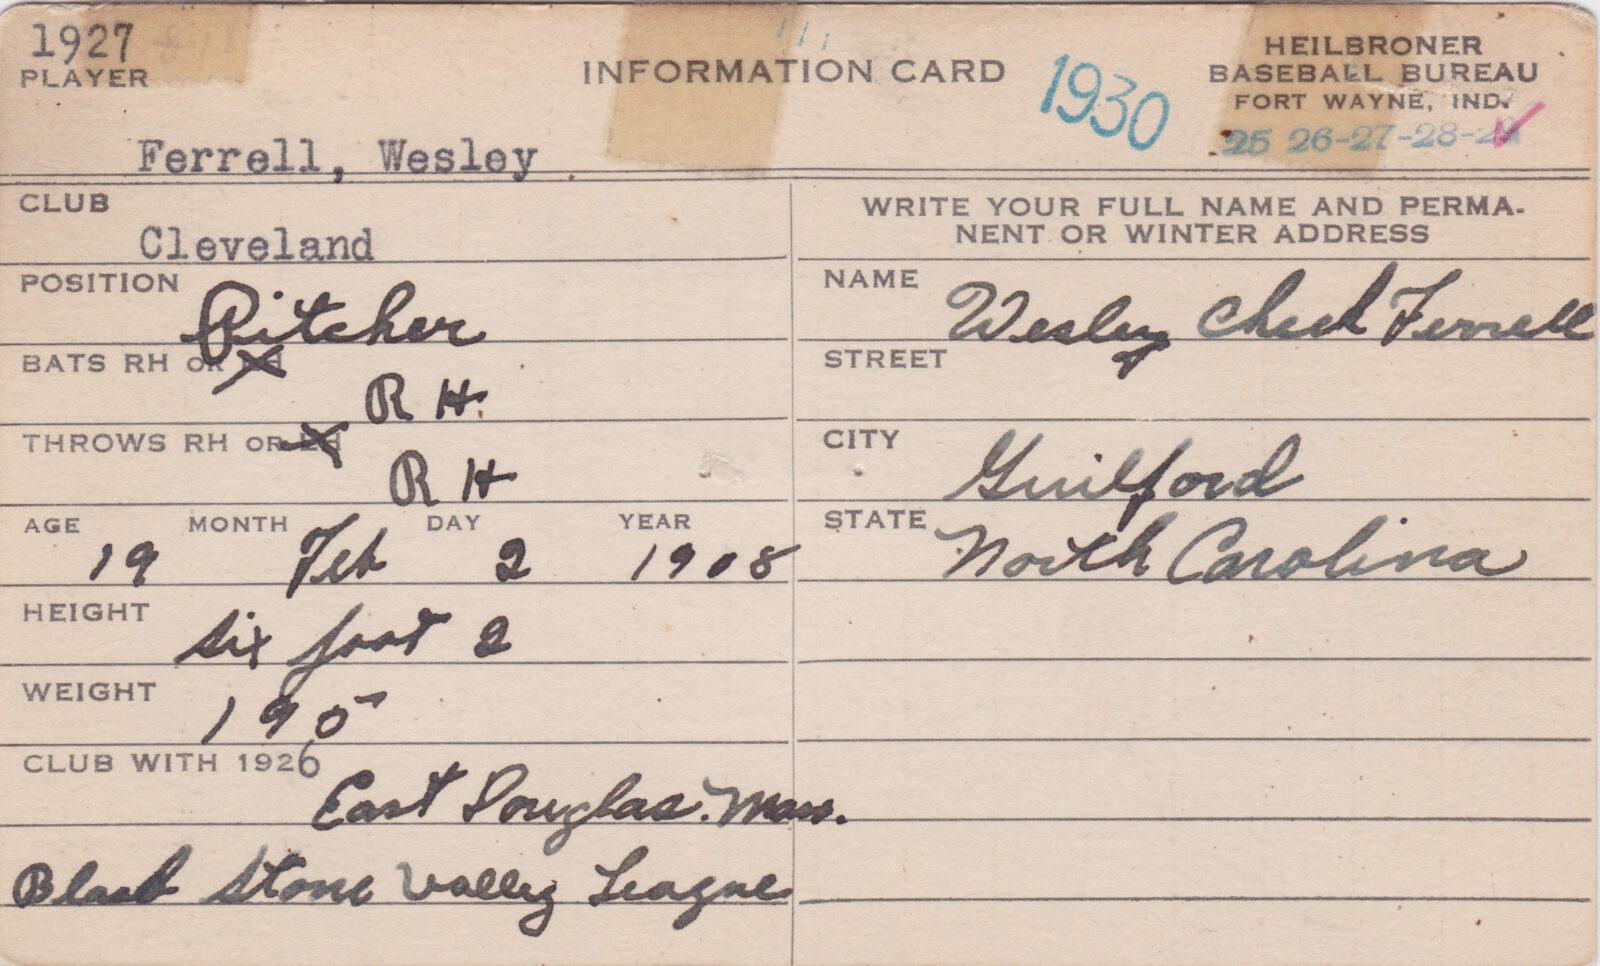 1927
PLAYER
INFORMATION CARD
1930
HEILBRONER
BASEBALL BUREAU
FORT WAYNE, IND.
25 26-27-28-
Ferrell, Wesley
CLUB
Cleveland
POSITION
Pitcher
BATS RH OR LH
R H.
THROWS RH OR LH
R H
AGE MONTH DAY YEAR
19 Feb 2 1908
HEIGHT
six foot 2
WEIGHT
190
CLUB WITH 1926
East Douglas. Mass.
Black Stone Valley League
WRITE YOUR FULL NAME AND PERMA-
NENT OR WINTER ADDRESS
NAME
Wesley Cheek Ferrell
STREET
CITY
Guilford
STATE
North Carolina